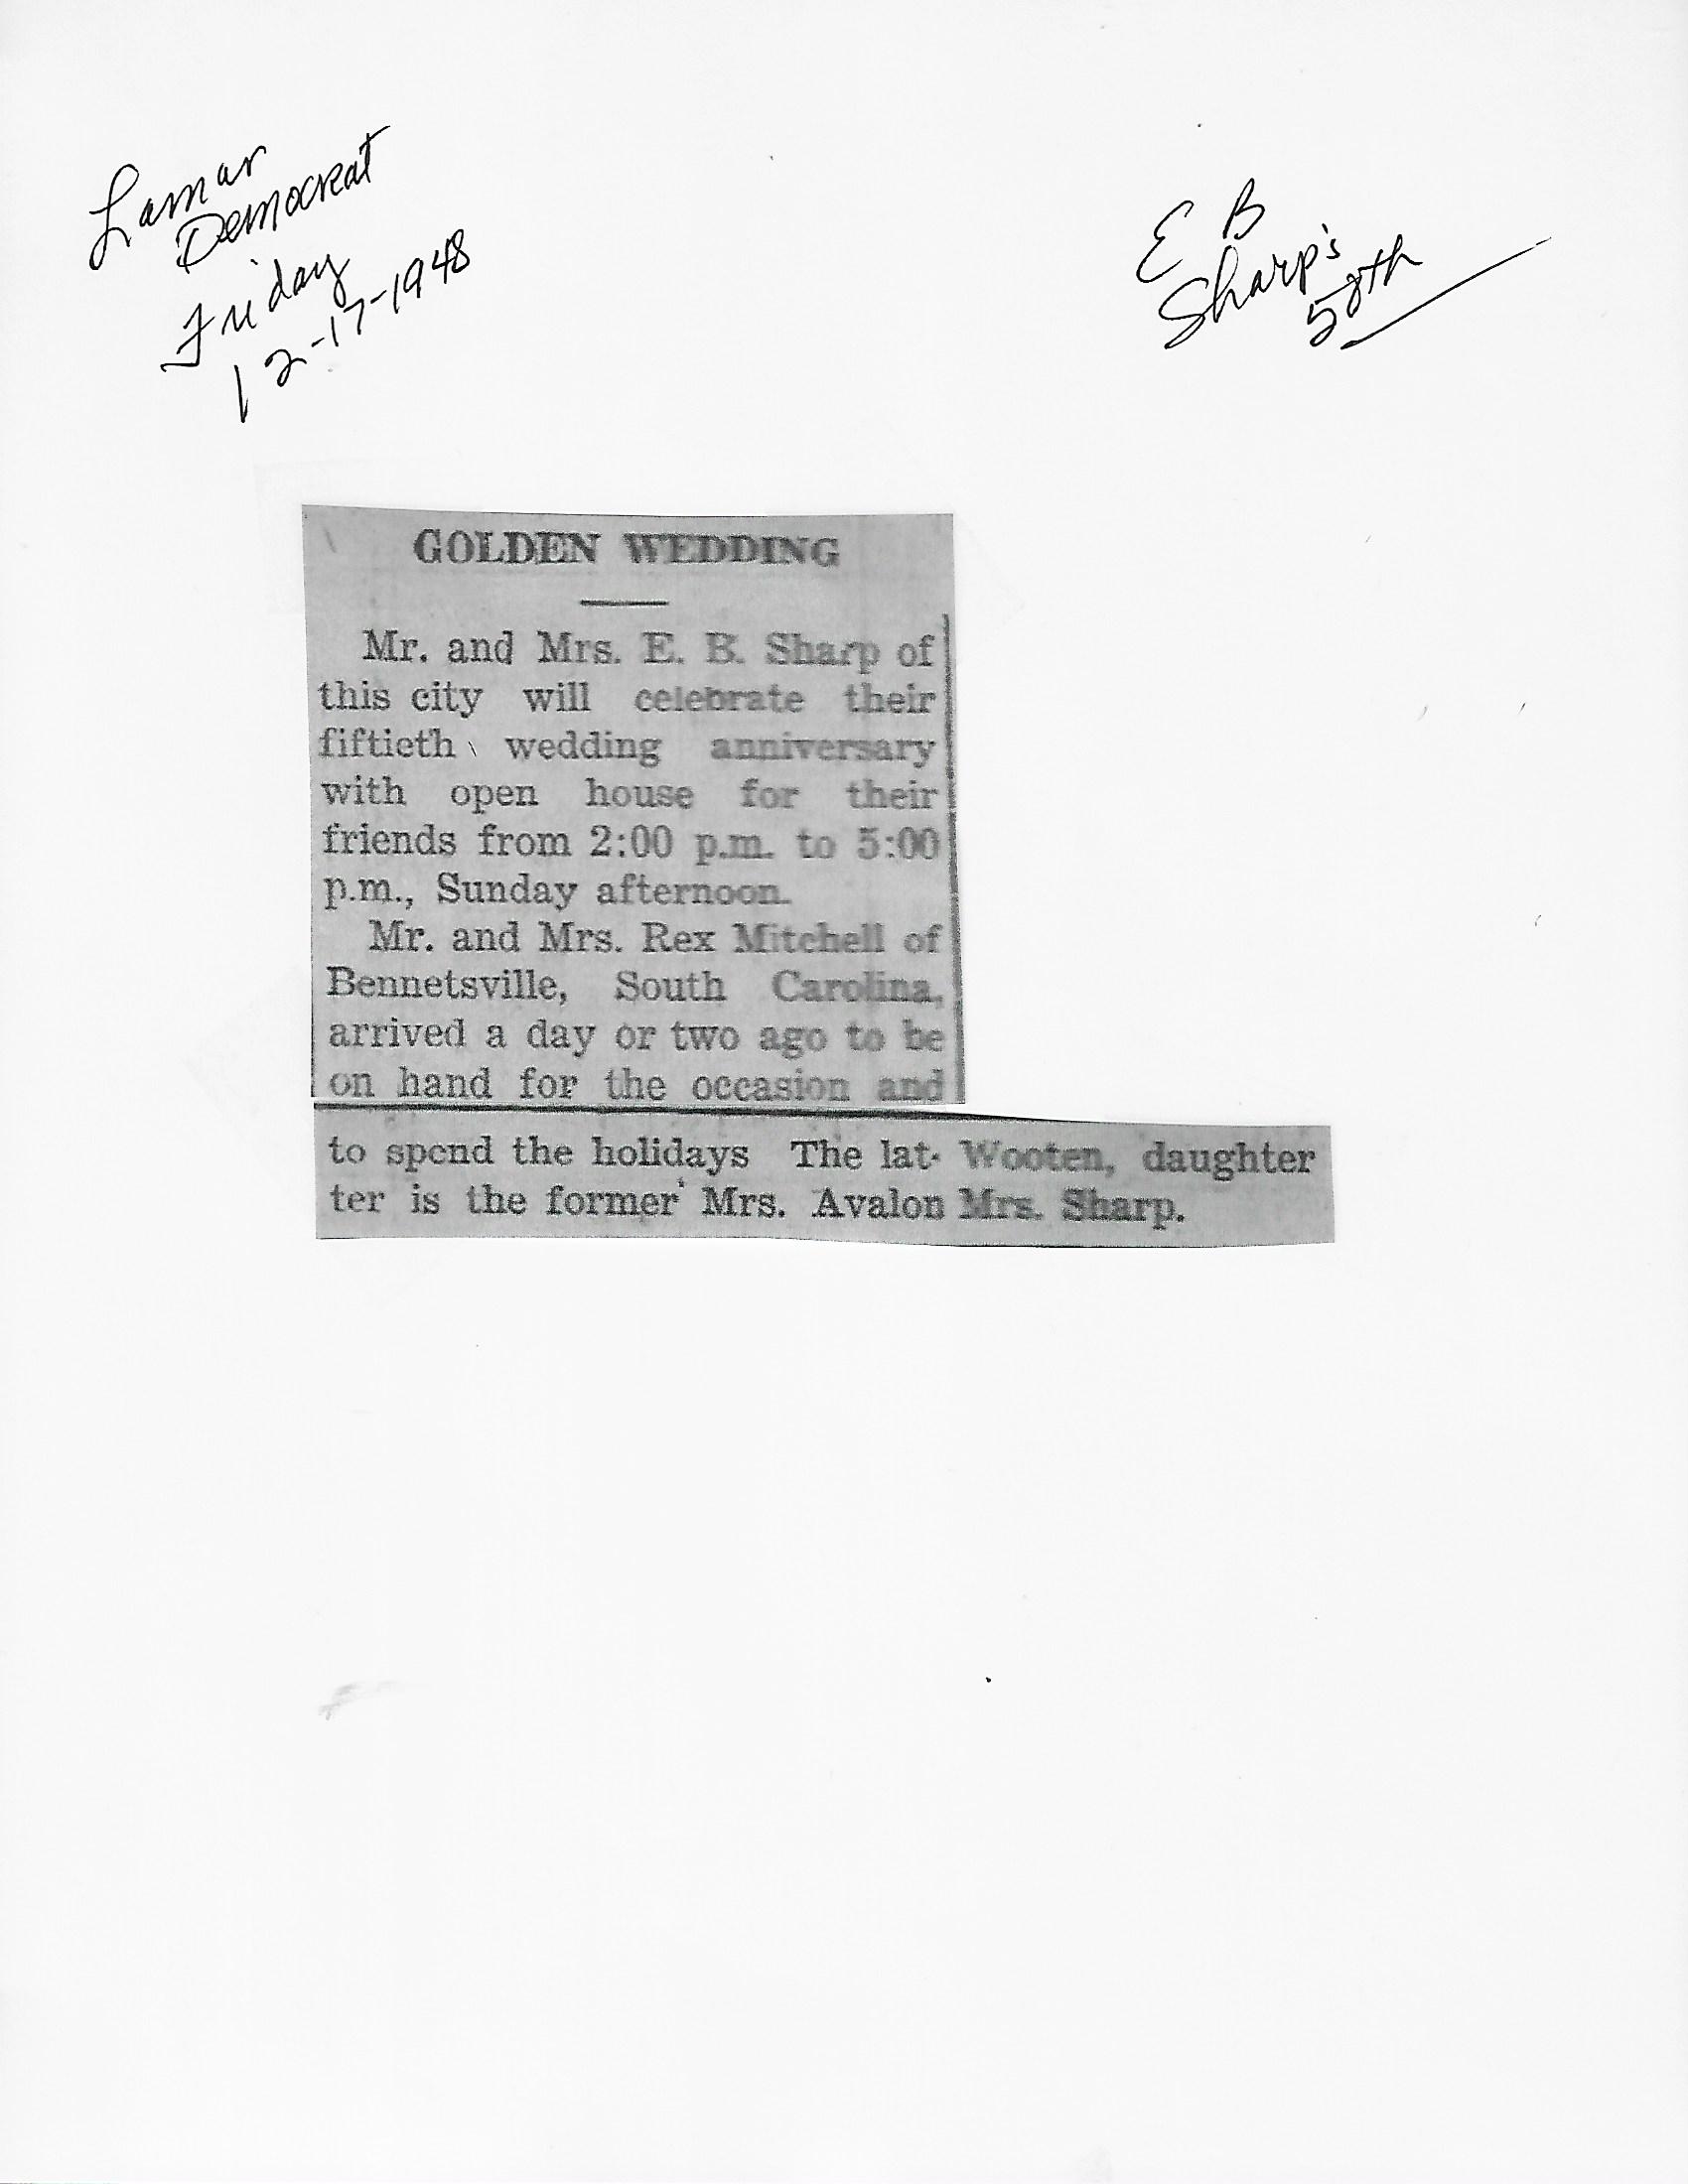 Lamar
Democrat
Friday
12-17-1948
E B
Sharp's
50th
GOLDEN WEDDING
Mr. and Mrs. E. B. Sharp of
this city will celebrate their
fiftieth wedding anniversary
with open house for their
friends from 2:00 p.m. to 5:00
p.m., Sunday afternoon.
Mr. and Mrs. Rex Mitchell of
Bennetsville, South Carolina,
arrived a day or two ago to be
on hand for the occasion and
to spend the holidays The lat-
ter is the former Mrs. Avalon
Wooten, daughter
Mrs. Sharp.